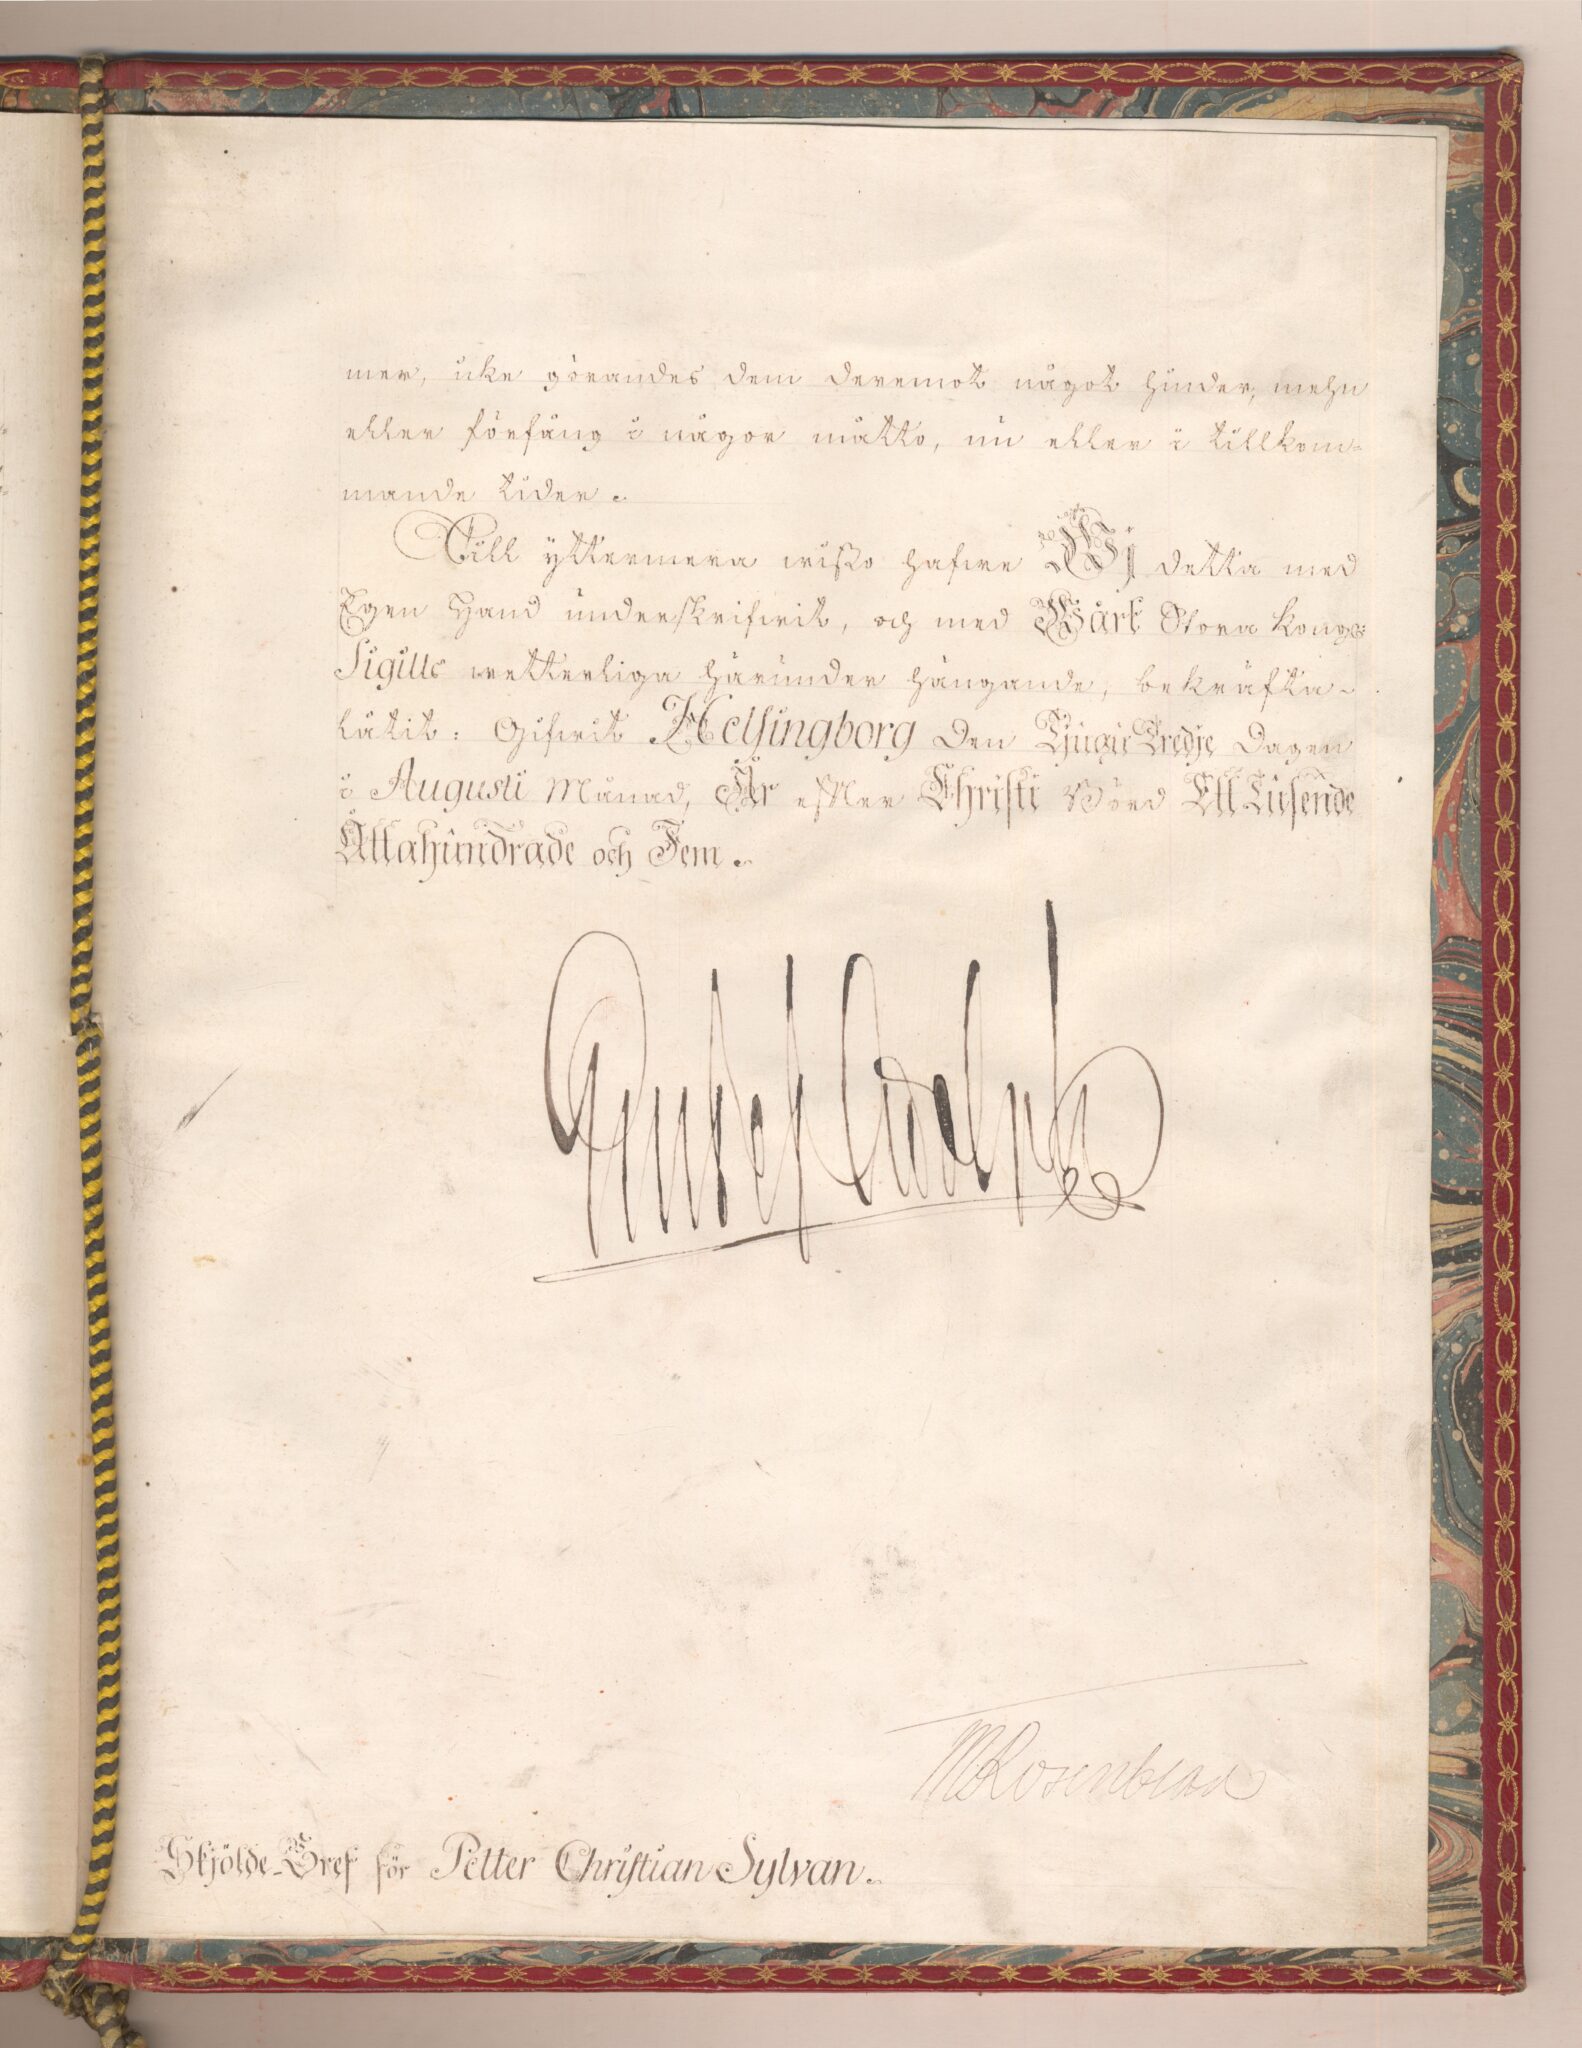 mer, icke görandes dem deremot något hinder, mehn
eller förfång i någor måtto, nu eller i tillkom-
mande tider.
Till yttermera wisso hafwe Wij detta med
Egen Hand underskrifwit, och med Wårt Stora Kongs:
Sigille wetterliga härunder hängande, bekräfta
låtit: Gifwit Helsingborg den Tjugu Tredje Dagen
i Augusti Månad, År efter Christi Börd Ett Tusende
Åttahundrade och Fem.
Gustaf Adolph
MRosenblad
Skjölde-Bref för Petter Christian Sylvan.